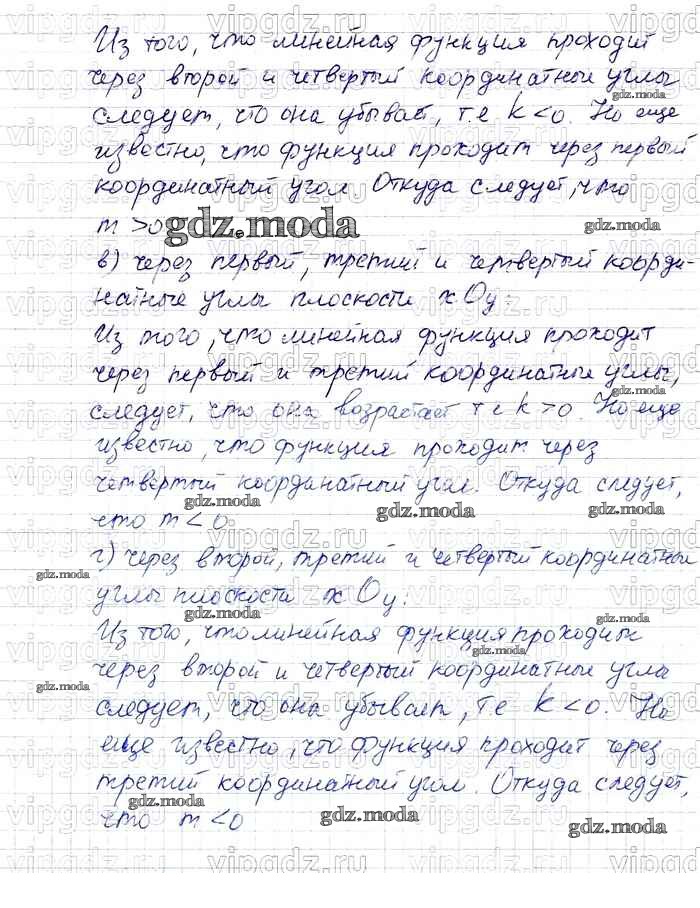 Из того, что линейная функция проходит
через второй и четвертый координатные углы
следует, что она убывает, т.е k<0. Но еще
известно, что функция проходит через первый
координатный угол. Откуда следует, что
m >0
в) через первый, третий и четвертый коорди-
натные углы плоскости xOy:
Из того, что линейная функция проходит
через первый и третий координатные углы,
следует, что она возрастает т е k>0. Но еще
известно, что функция проходит через
четвертый координатный угол. Откуда следует,
что m<0
г) через второй, третий и четвертый координатные
углы плоскости xOy:
Из того, что линейная функция проходит
через второй и четвертый координатные угла
следует, что она убывает, т.е k<0. Но
еще известно, что функция проходит через
третий координатный угол. Откуда следует,
что m<0
gdz.moda
vipgdz.ru